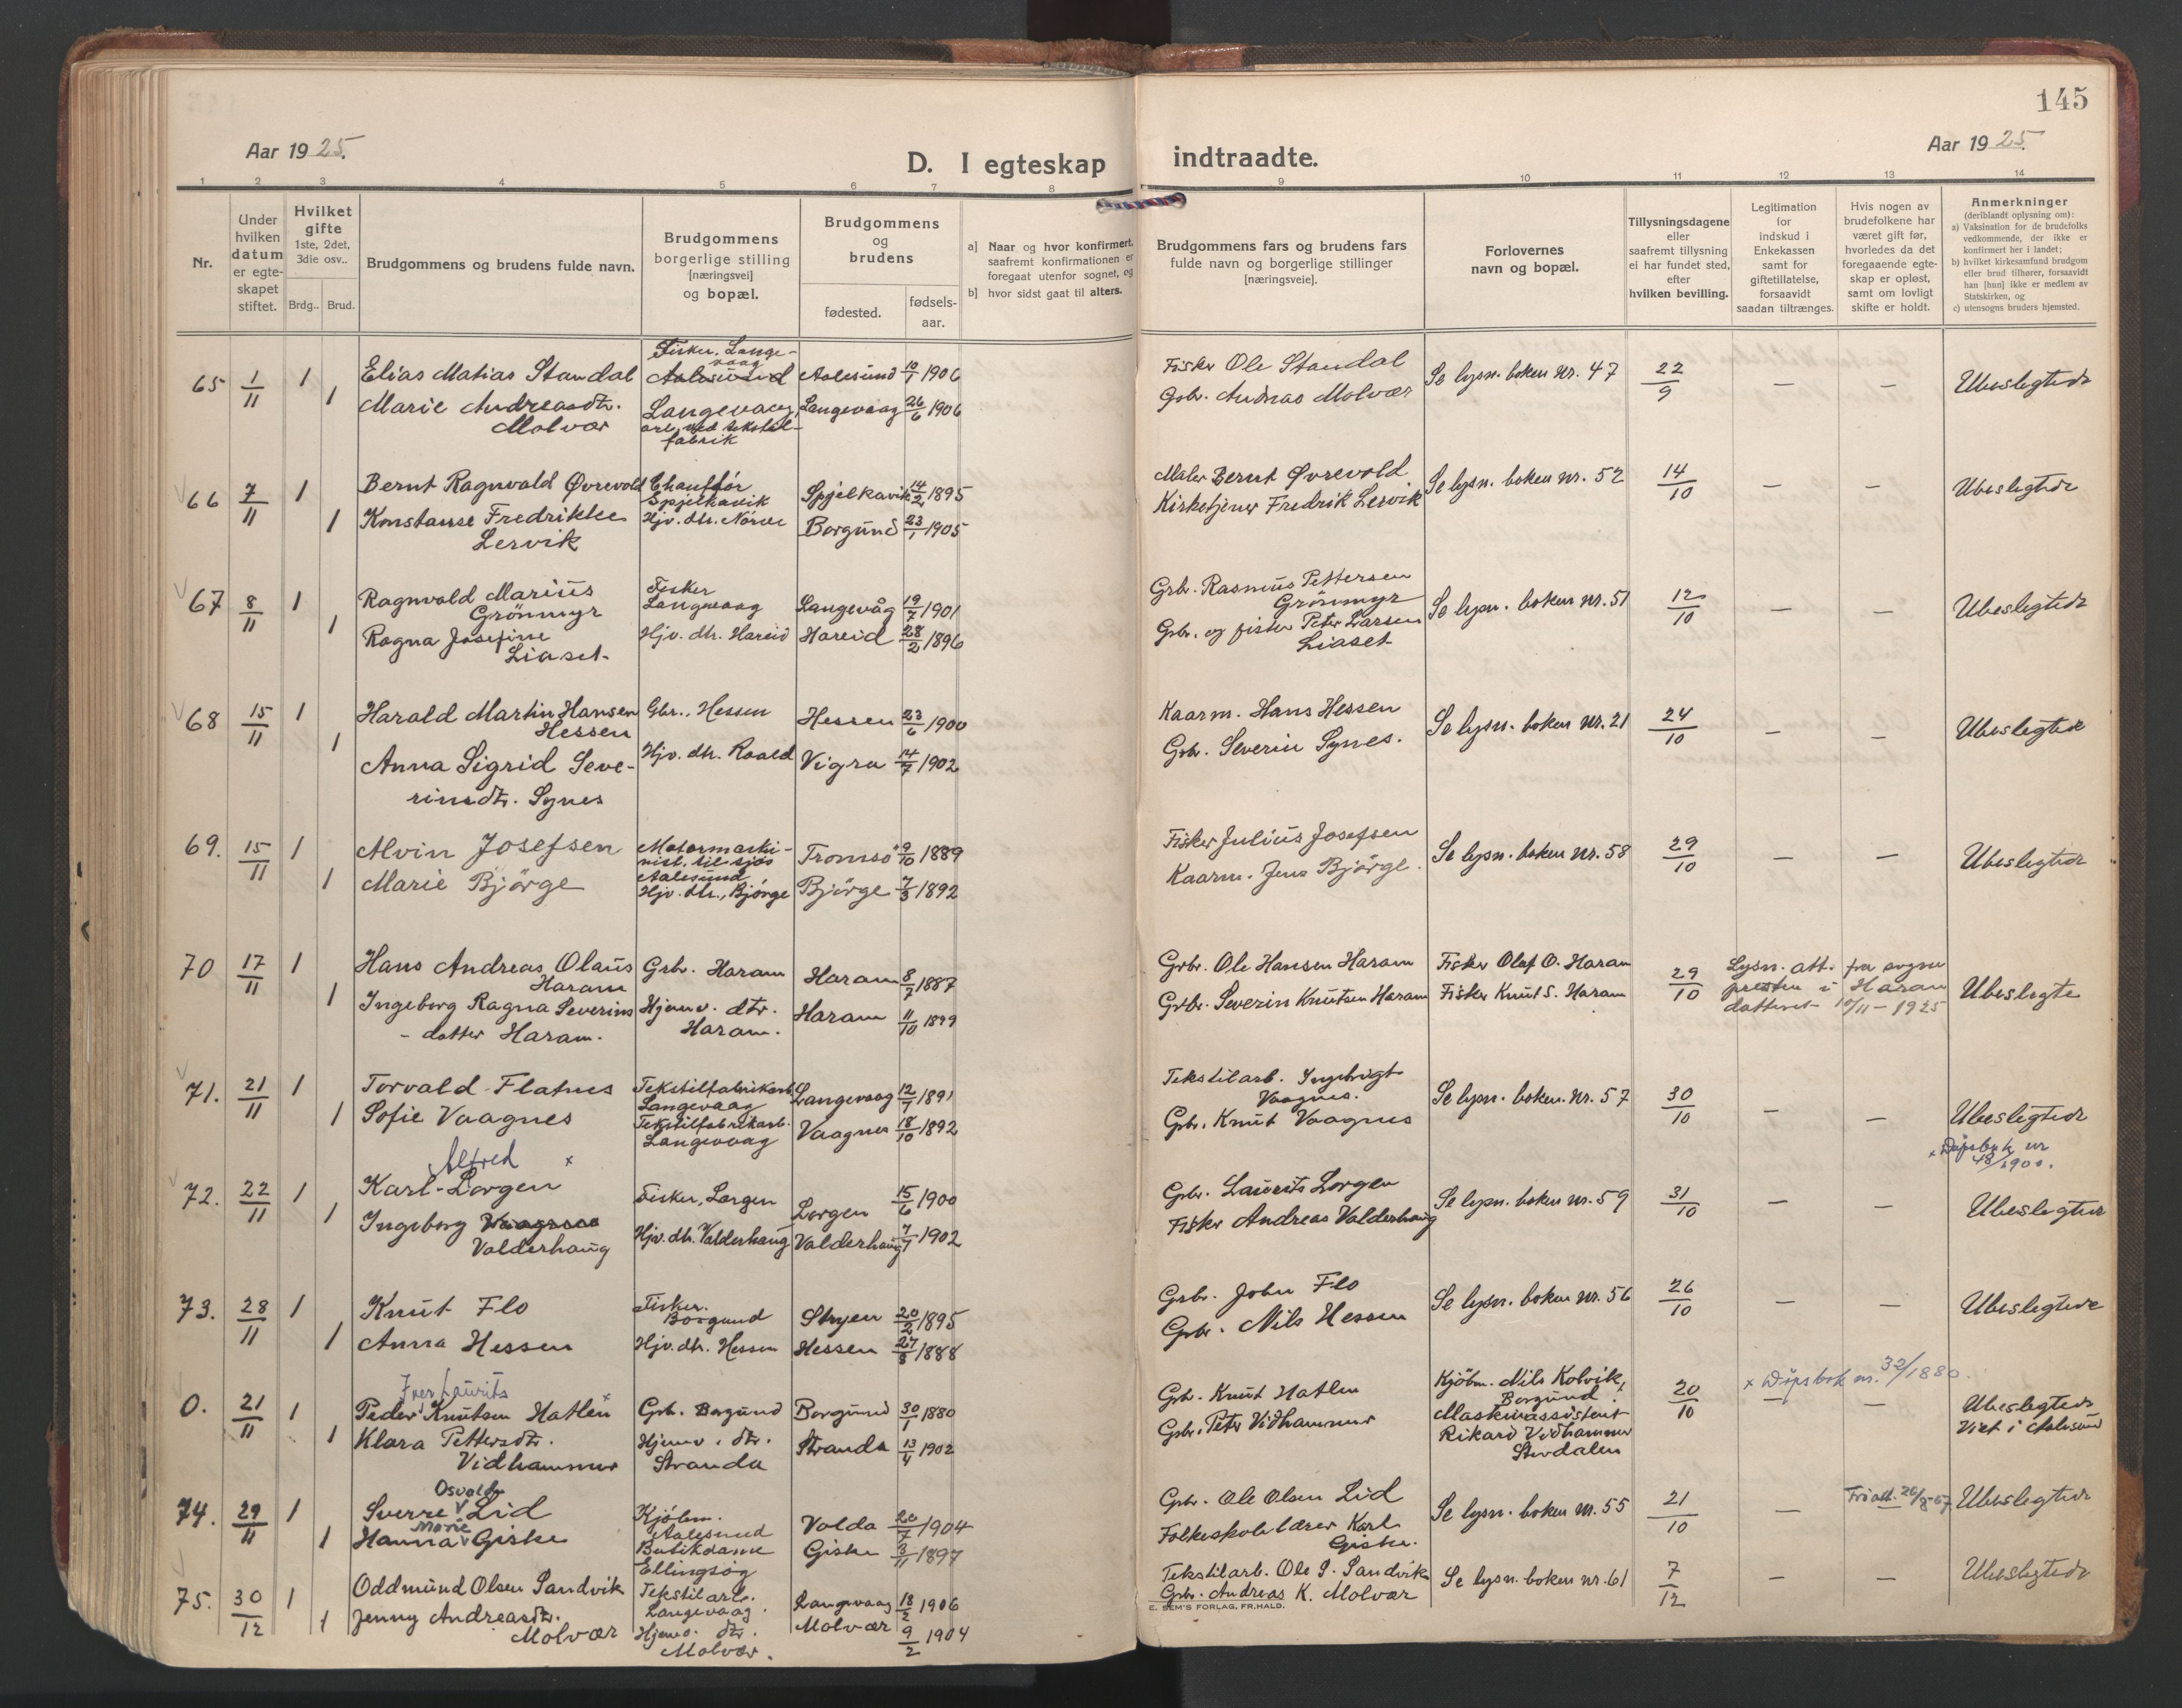 145
Aar 1925.
Aar 1925.
D. I egteskap indtraadte.
1 2 3 4 5 6 7 8 9 10 11 12 13 14
Nr.
Under hvilken datum er egteskapet stiftet.
Hvilket gifte 1ste, 2det, 3die osv..
Brdg.. Brud.
Brudgommens og brudens fulde navn.
Brudgommens borgerlige stilling [næringsvei] og bopæl.
Brudgommens og brudens
fødested. fødselsaar.
a] Naar og hvor konfirmert, saafremt konfirmationen er foregaat utenfor sognet, og
b] hvor sidst gaat til alters.
Brudgommens fars og brudens fars fulde navn og borgerlige stillinger [næringsveie].
Forlovernes navn og bopæl.
Tillysningsdagene eller saafremt tillysning ei har fundet sted, efter hvilken bevilling.
Legitimation for indskud i Enkekassen samt for giftetillatelse, forsaavidt saadan tiltrænges.
Hvis nogen av brudefolkene har været gift før, hvorledes da det foregaaende egteskap er opløst, samt om lovligt skifte er holdt.
Anmerkninger (deriblandt oplysning om):
a) Vaksination for de brudefolks vedkommende, der ikke er konfirmert her i landet;
b) hvilket kirkesamfund brudgom eller brud tilhører, forsaavidt han [hun] ikke er medlem av Statskirken, og
c) utensogns bruders hjemsted.
65 1/11 1 Elias Matias Standal Fisker. Langevaag Aalesund Aalesund 10/1 1906 Fisker Ole Standal Se lysn. boken nr. 47 22/9 — — Ubeslegtede
1 Marie Andreasdtr. Molvær Langevaag, arb. ved tekstilfabrik Langevaag 26/6 1906 Gbr. Andreas Molvær
66 7/11 1 Bernt Ragnvald Øvrevold Chauffør Spjelkavik Spjelkavik 14/2 1895 Maler Bernt Øvrevold Se lysn. boken nr. 52 14/10 — — Ubeslegtede
1 Konstanse Fredrikke Lervik Hjv. dtr. Nörve Borgund 23/1 1905 Kirketjener Fredrik Lervik
67 8/11 1 Ragnvald Marius Grönmyr Fisker Langevaag Langevåg 19/7 1901 Grb. Rasmus Pettersen Grönmyr Se lysn. boken nr. 51 12/10 — — Ubeslegtede
1 Ragna Josefine Liaset Hjv. dtr. Hareid Hareid 28/2 1896 Grb. og fisker Peter Larsen Liaset
68 15/11 1 Harald Martin Hansen Hessen Gbr., Hessen Hessen 23/6 1900 Kaarm. Hans Hessen Se lysn. boken nr. 21 24/10 — — Ubeslegtede
1 Anna Sigrid Severinsdtr. Synes Hjv. dtr. Roald Vigra 14/7 1902 Grb. Severin Synes.
69. 15/11 1 Alvin Josefsen Motormaskinist, til sjös Aalesund Tromsö 9/10 1889 Fisker Julius Josefsen Se lysn. boken nr. 58 29/10 — — Ubeslegtede
1 Marie Björge Hjv. dtr., Bjørge Bjørge 7/3 1892 Kaarm. Jens Bjørge.
70 17/11 1 Hans Andreas Olaus Haram Grbr. Haram Haram 8/7 1887 Grbr. Ole Hansen Haram Fisker Olaf O. Haram 29/10 Lysn. att. fra sognepresten i Haram datteret 10/11–1925 Ubeslegte
1 Ingeborg Ragna Severinsdatter Haram. Hjemv. dtr. Haram. Haram 11/10 1899 Grbr. Severin Knutsen Haram Fisker Knut S. Haram
71. 21/11 1 Torvald Flatnes Tekstilfabrikarb. Langevaag Langevaag 12/7 1891 Tekstilarb. Ingebrigt Vaagnes. Se lysn. boken nr. 57 30/10 — — Ubeslegtede
1 Sofie Vaagnes Tekstilfabrikarb. Langevaag Vaagnes 18/10 1892 Grb. Knut Vaagnes
x Döpsbok nr 48/1900.
72. 22/11 1 Karl Alfred Lorgen x Fisker, Lorgen Lorgen 15/6 1900 Grb. Laurits Lorgen Se lysn. boken nr. 59 31/10 — — Ubeslegtede
1 Ingeborg Vaagnes Valderhaug Hjv. dtr. Valderhaug Valderhaug 7/7 1902 Fisker Andreas Valderhaug
73. 28/11 1 Knut Flo Fisker. Borgund Stryen 20/2 1895 Grb. John Flo Se lysn. boken nr. 56 26/10 — — Ubeslegtede
1 Anna Hessen Hjv. dtr. Hessen Hessen 27/8 1888 Grb. Nils Hessen
x Döpsbok nr. 32/1880.
0. 21/11 1 Peder Iver Laurits Knutsen Hatlen x Grb. Borgund Borgund 30/1 1880 Grb. Knut Hatlen Kjöbm. Nils Kolvik, Borgund. 20/10 — — Ubeslegtede Viet i Aalesund
1 Klara Pettersdtr. Vidhammer Hjemv. dtr. Stranda Stranda 13/4 1902 Grb. Peter Vidhammer Maskinassistent Rikard Vidhammer
74. 29/11 1 Sverre Osvald Lid Kjöbm. Aalesund Volda 20/7 1904 Grb. Ole Olsen Lid Se lysn. boken nr. 55 21/10 — Friatt. 26/8-57 Ubeslegtede
1 Hanna Marie Giske Butikdame Ellingsøy Giske 3/11 1897 Folkeskolelærer Karl Giske.
75. 30/12 1 Oddmund Olsen Sandvik Tekstilarb. Langevaag. Langevaag 18/2 1906 Tekstilarb. Ole S. Sandvik Se lysn. boken nr. 61 7/12 — — Ubeslegtede
1 Jenny Andreasdtr. Molvær Hjemv. dtr. Molvær. Molvær 9/2 1904 Grb. Andreas K. Molvær
E. SEM'S FORLAG, FR.HALD.